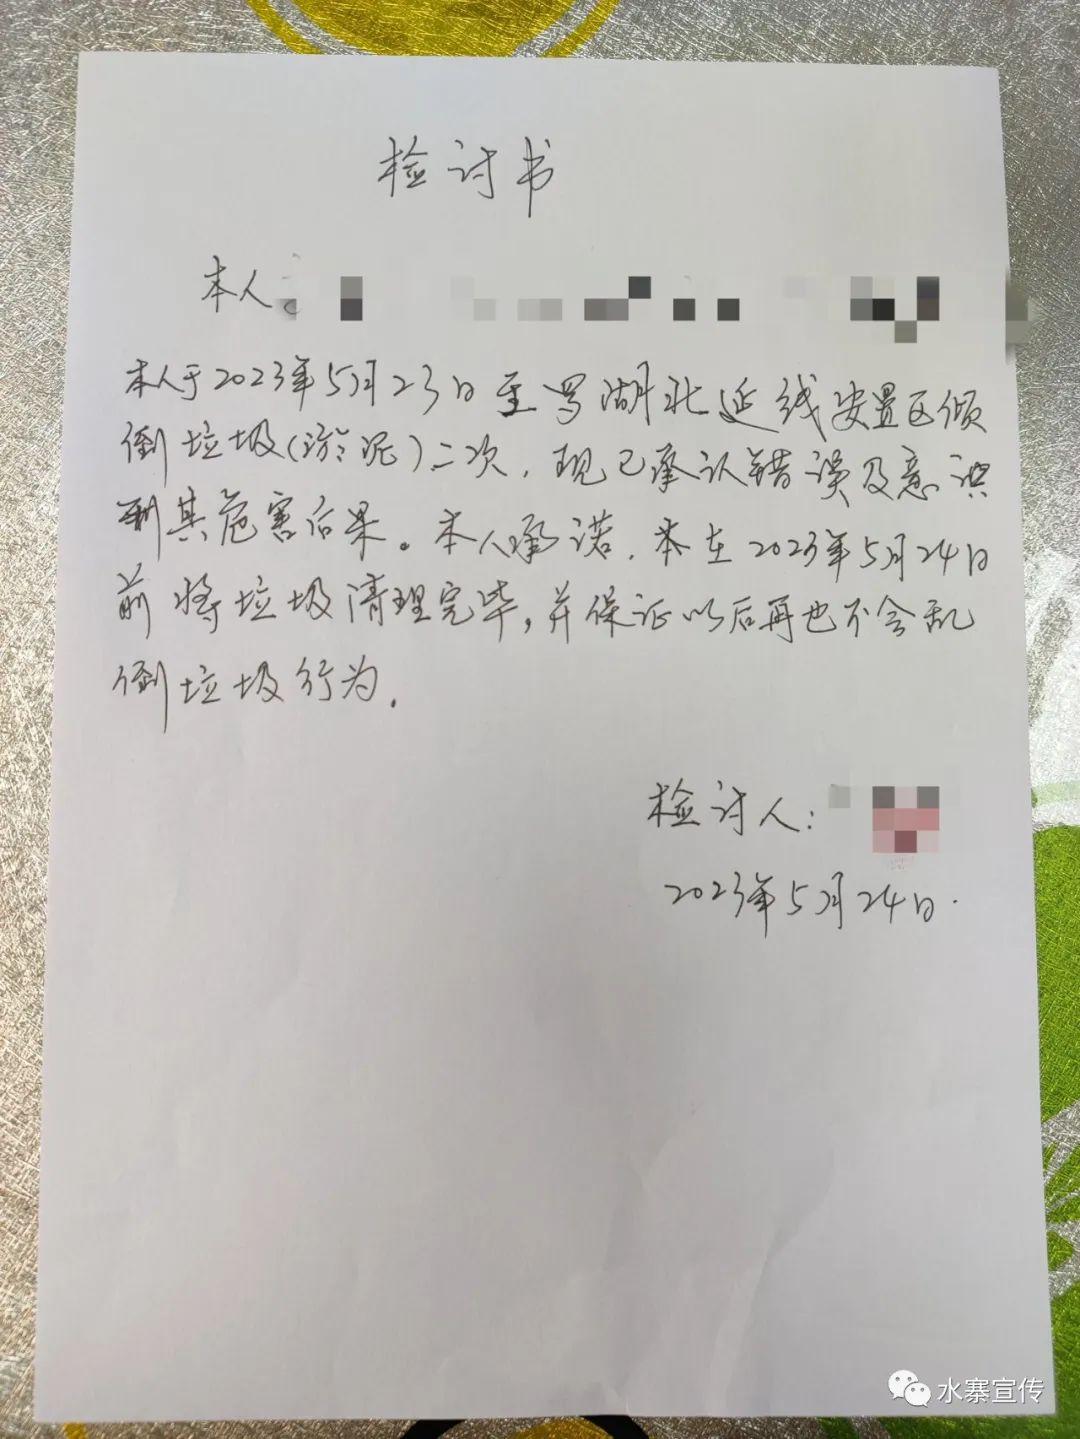 检讨书
本人
本人于2023年5月23日至罗湖北延线安置区倾
倒垃圾(淤泥)二次，现已承认错误及意识
到其危害后果。本人承诺，本在2023年5月24日
前将垃圾清理完毕，并保证以后再也不会乱
倒垃圾行为.
检讨人:
2023年5月24日.
水寨宣传